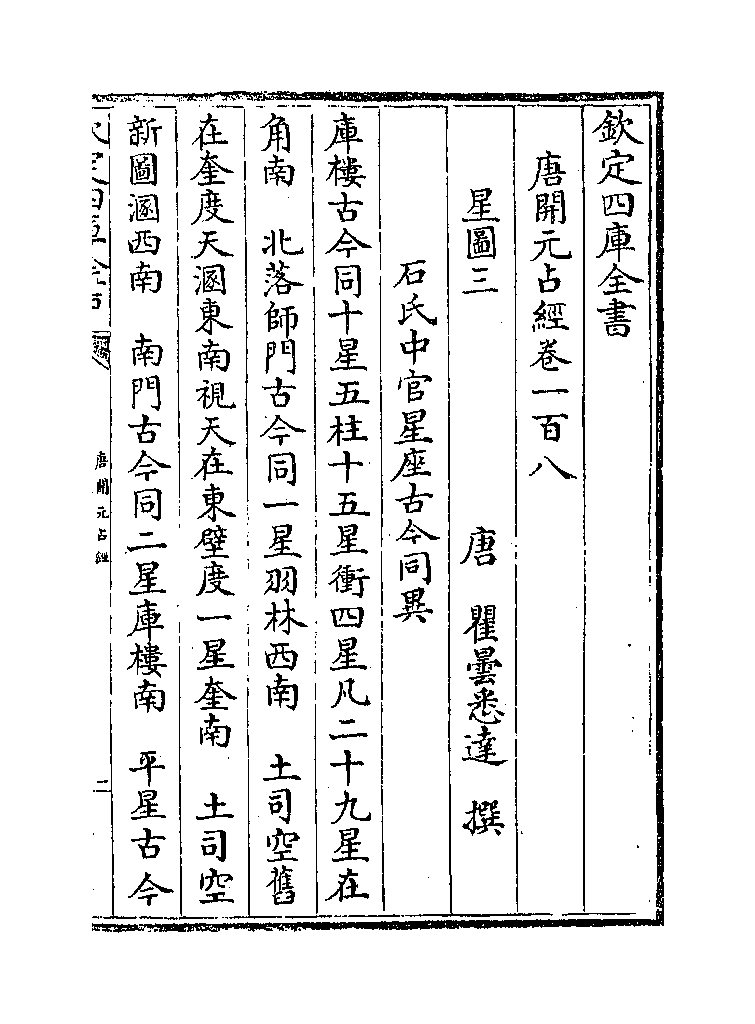 欽定四庫全書
唐開元占經卷一百八
星圖三　唐　瞿曇悉達　撰
石氏中官星座古今同異
庫樓古今同十星五柱十五星衡四星凡二十九星在
角南　北落師門古今同一星羽林西南　土司空舊
在奎度天溷東南視天在東壁度一星奎南　土司空
新圖溷西南　南門古今同二星庫樓南　平星古今
唐開元占經
二